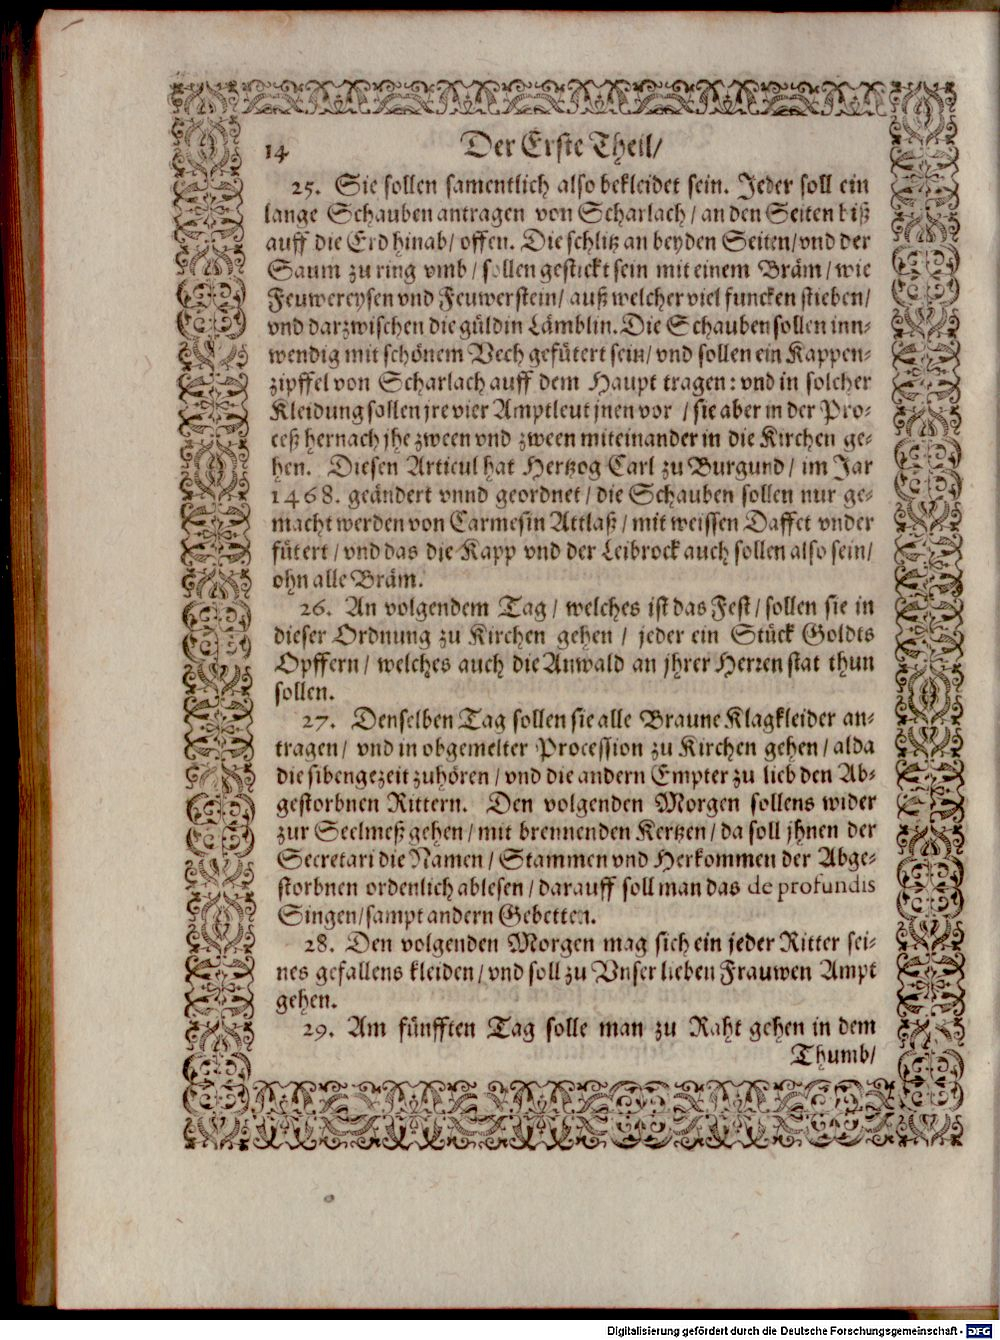 14 Der Erste Theil/
25. Sie sollen samentlich also bekleidet sein. Jeder soll ein
lange Schauben antragen von Scharlach / an den Seiten biß
auff die Erd hinab / offen. Die schlitz an beyden Seiten / vnd der
Saum zu ring vmb / sollen gestickt sein mit einem Bräm / wie
Feuwereysen vnd Feuwerstein / auß welcher viel funcken stieben /
vnd darzwischen die güldin Lämblin. Die Schauben sollen inn-
wendig mit schönem Vech gefütert sein / vnd sollen ein Kappen-
zipffel von Scharlach auff dem Haupt tragen: vnd in solcher
Kleidung sollen jre vier Amptleut jnen vor / sie aber in der Pro-
ceß hernach jhe zween vnd zween miteinander in die Kirchen ge-
hen. Diesen Articul hat Hertzog Carl zu Burgund / im Jar
1468. geändert vnnd geordnet / die Schauben sollen nur ge-
macht werden von Carmesin Attlaß / mit weissen Daffet vnder
fütert / vnd das die Kapp vnd der Leibrock auch sollen also sein /
ohn alle Bräm.
26. An volgendem Tag / welches ist das Fest / sollen sie in
dieser Ordnung zu Kirchen gehen / jeder ein Stück Goldts
Opffern / welches auch die Anwald an jhrer Herren stat thun
sollen.
27. Denselben Tag sollen sie alle Braune Klagkleider an-
tragen / vnd in obgemelter Procession zu Kirchen gehen / alda
die sibengezeit zuhören / vnd die andern Empter zu lieb den Ab-
gestorbnen Rittern. Den volgenden Morgen sollens wider
zur Seelmeß gehen / mit brennenden Kertzen / da soll jhnen der
Secretari die Namen / Stammen vnd Herkommen der Abge-
storbnen ordenlich ablesen / darauff soll man das de profundis
Singen / sampt andern Gebetten.
28. Den volgenden Morgen mag sich ein jeder Ritter sei-
nes gefallens kleiden / vnd soll zu Vnser lieben Frauwen Ampt
gehen.
29. Am fünfften Tag solle man zu Raht gehen in dem
Thumb/
Digitalisierung gefördert durch die Deutsche Forschungsgemeinschaft - DFG